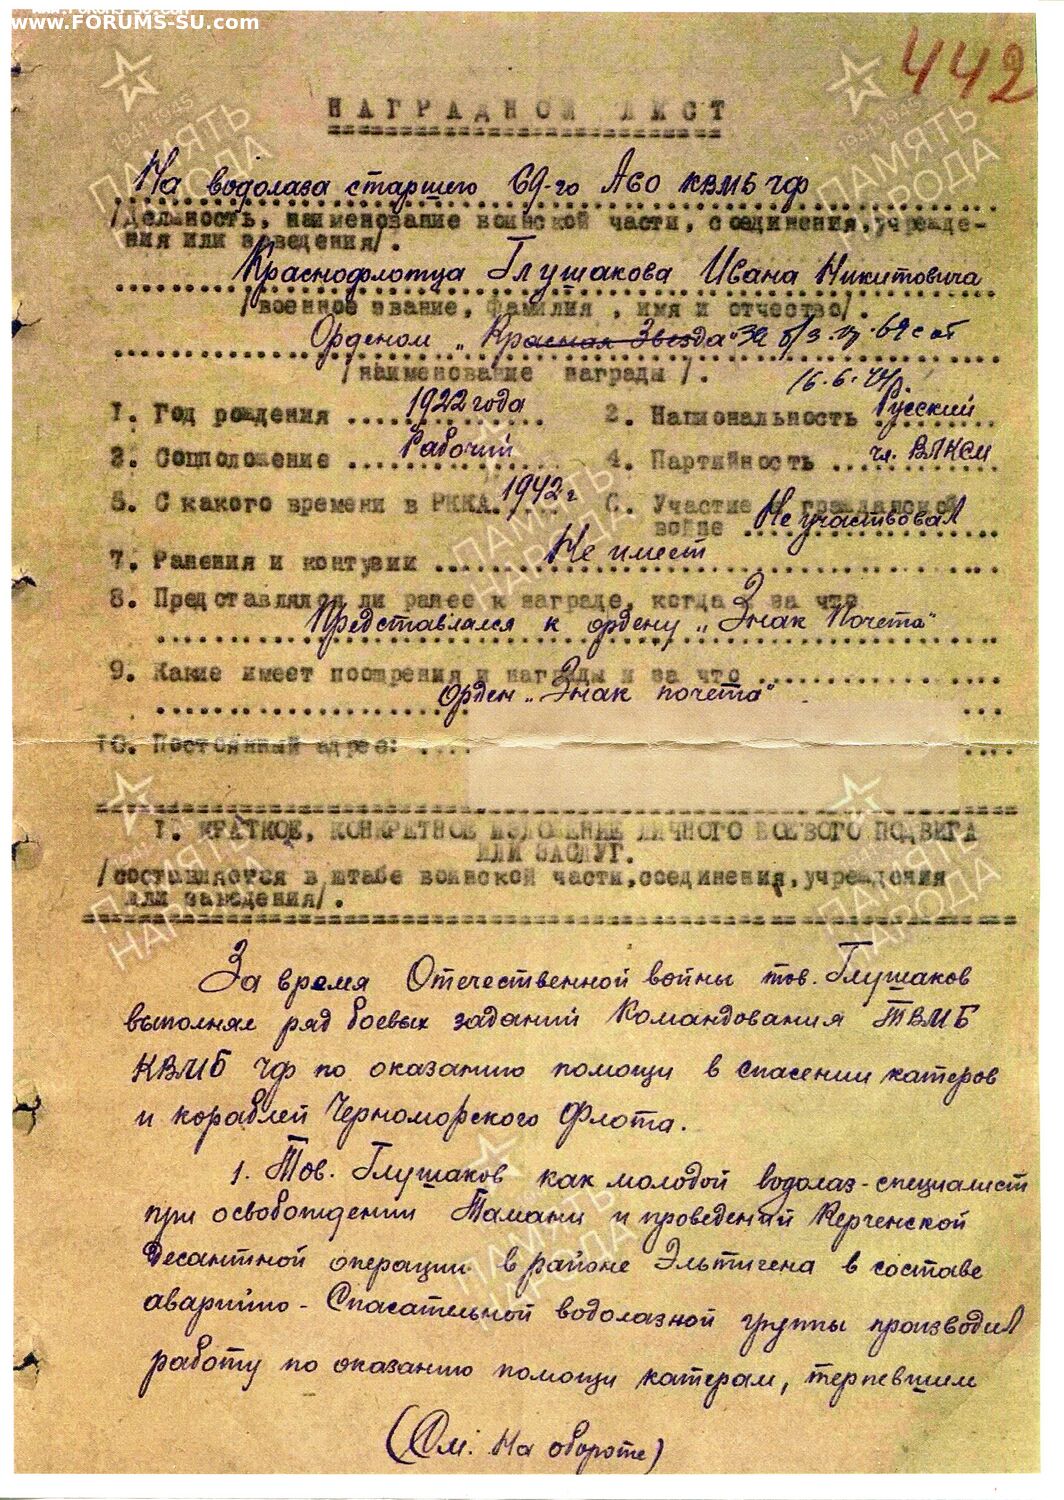 www.FORUMS-SU.com
442
НАГРАДНОЙ ЛИСТ
На водолаза старшего 69-го АСО КВМБ ЧФ
/Должность, наименование воинской части, соединения, учрежде-
ния или заведения/.
Краснофлотца Глушакова Ивана Никитовича
/военное звание, фамилия, имя и отчество/.
Орденом „Красная Звезда"
/наименование награды/.
16.6.44г.
1. Год рождения ... 1922 года 2. Национальность Русский
3. Соцположение ... Рабочий 4. Партийность ... чл. ВЛКСМ
5. С какого времени в РККА. 1942 г 6. Участие в гражданской
войне Не участвовал
7. Ранения и контузии ... Не имеет
8. Представлялся ли ранее к награде, когда и за что
Представлялся к ордену „Знак Почета"
9. Какие имеет поощрения и награды и за что
орден „Знак почета"
10. Постоянный адрес: ....
I. КРАТКОЕ, КОНКРЕТНОЕ ИЗЛОЖЕНИЕ ЛИЧНОГО БОЕВОГО ПОДВИГА
ИЛИ ЗАСЛУГ.
/составляется в штабе воинской части, соединения, учреждения
или заведения/.
За время Отечественной войны тов. Глушаков
выполнял ряд боевых заданий Командования ТВМБ
КВМБ ЧФ по оказанию помощи в спасении катеров
и кораблей Черноморского Флота.
1. Тов. Глушаков как молодой водолаз-специалист
при освобождении Тамани и проведений Керченской
Десантной операции в районе Эльтигена в составе
аварийно-Спасательной водолазной группы производил
работу по оказанию помощи катерам, терпевшим
(См. На обороте)
ПАМЯТЬ НАРОДА
1941-1945